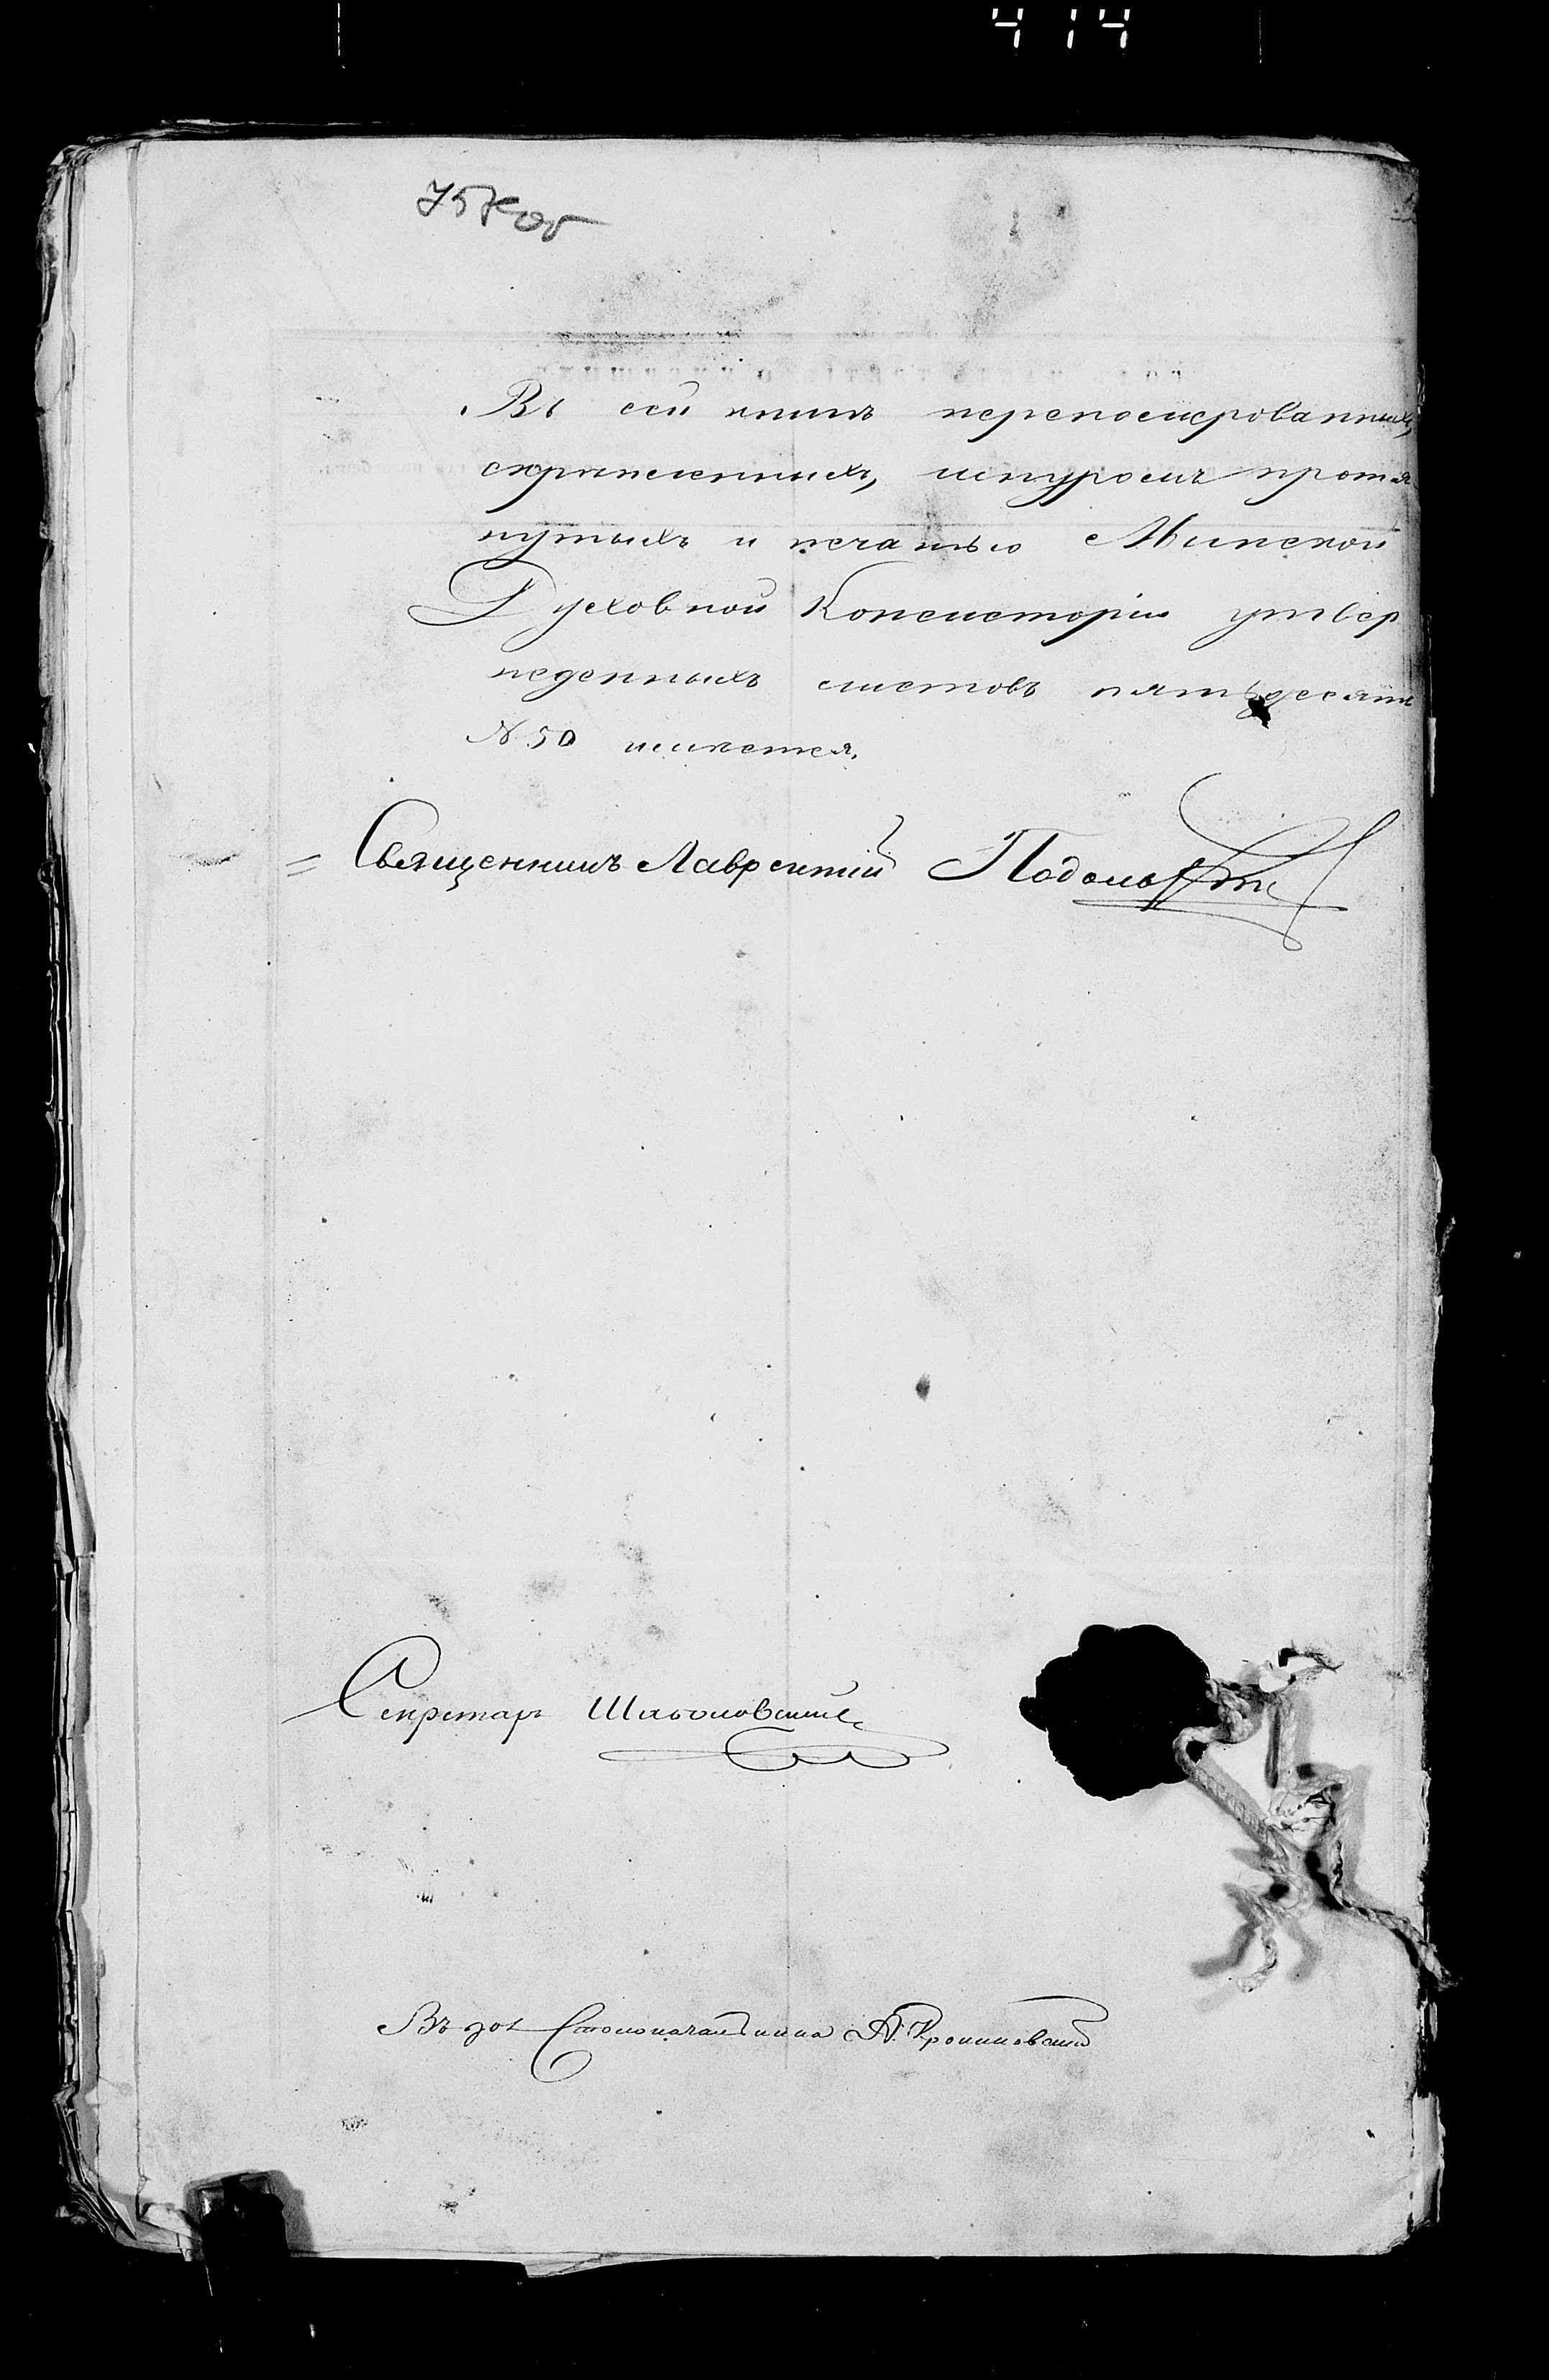 414
757 об
Въ сей книгѣ перепосированныхъ,
скрѣпленныхъ, шнуромъ протя
нутыхъ и печатью Минской
Духовной Консисторіи утвер
жденныхъ листовъ пятьдесятъ
№ 50 имѣется.
Священникъ Лаврентій
Секретарь
Въ дол Столоначальника А.